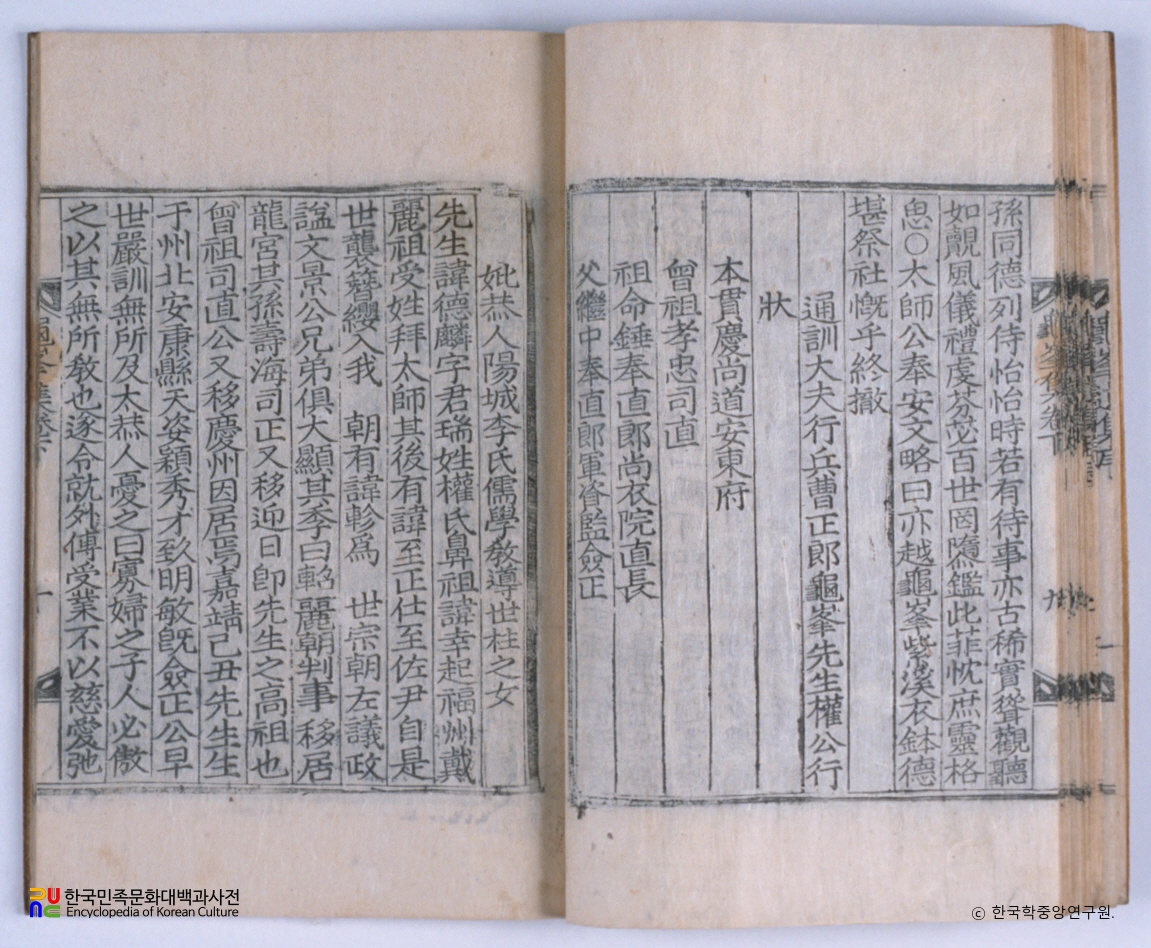 孫同德列侍怡怡時若有待事亦古稀實聳觀聽
如覿風儀禮虔芬苾百世罔隳鑑此菲忱庶靈格
思○太師公奉安文略曰亦越龜峯紫溪衣鉢德
堪祭社慨乎終撤
通訓大夫行兵曹正郎龜峯先生權公行
狀
本貫慶尚道安東府
曾祖孝忠司直
祖命錘奉直郎尚衣院直長
父繼中奉直郎軍資監僉正
妣恭人陽城李氏儒學教導世柱之女
先生諱德麟字君瑞姓權氏鼻祖諱幸起福州戴
麗祖受姓拜太師其後有諱至正仕至佐尹自是
世襲簪纓入我 朝有諱軫爲 世宗朝左議政
諡文景公兄弟俱大顯其季曰軺麗朝判事移居
龍宮其孫壽海司正又移迎日卽先生之高祖也
曾祖司直公又移慶州因居焉嘉靖己丑先生生
于州北安康縣天姿穎秀才致明敏旣僉正公早
世嚴訓無所及太恭人憂之曰寡婦之子人必傲
之以其無所教也遂令就外傅受業不以慈愛弛
九
한국민족문화대백과사전
Encyclopedia of Korean Culture
© 한국학중앙연구원.